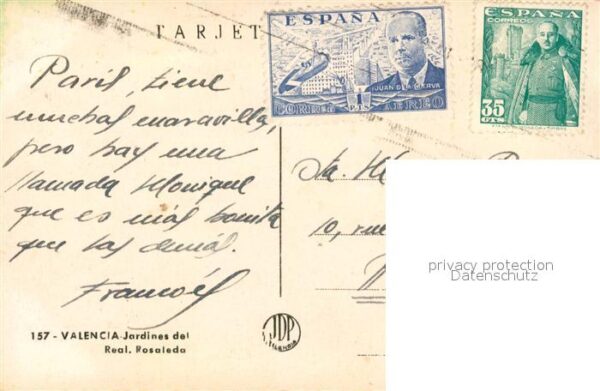 TARJET
ESPAÑA
JUAN DE LA CIERVA
1
PTA
CORREO AEREO
ESPAÑA
CORREOS
35
CTS
París, tiene
muchas maravillas,
pero hay una
llamada Monique
que es más bonita
que las demás.
François
157 - VALENCIA-Jardines del
Real. Rosaleda
JDP
VALENCIA
Sta.
10, rue
privacy protection
Datenschutz